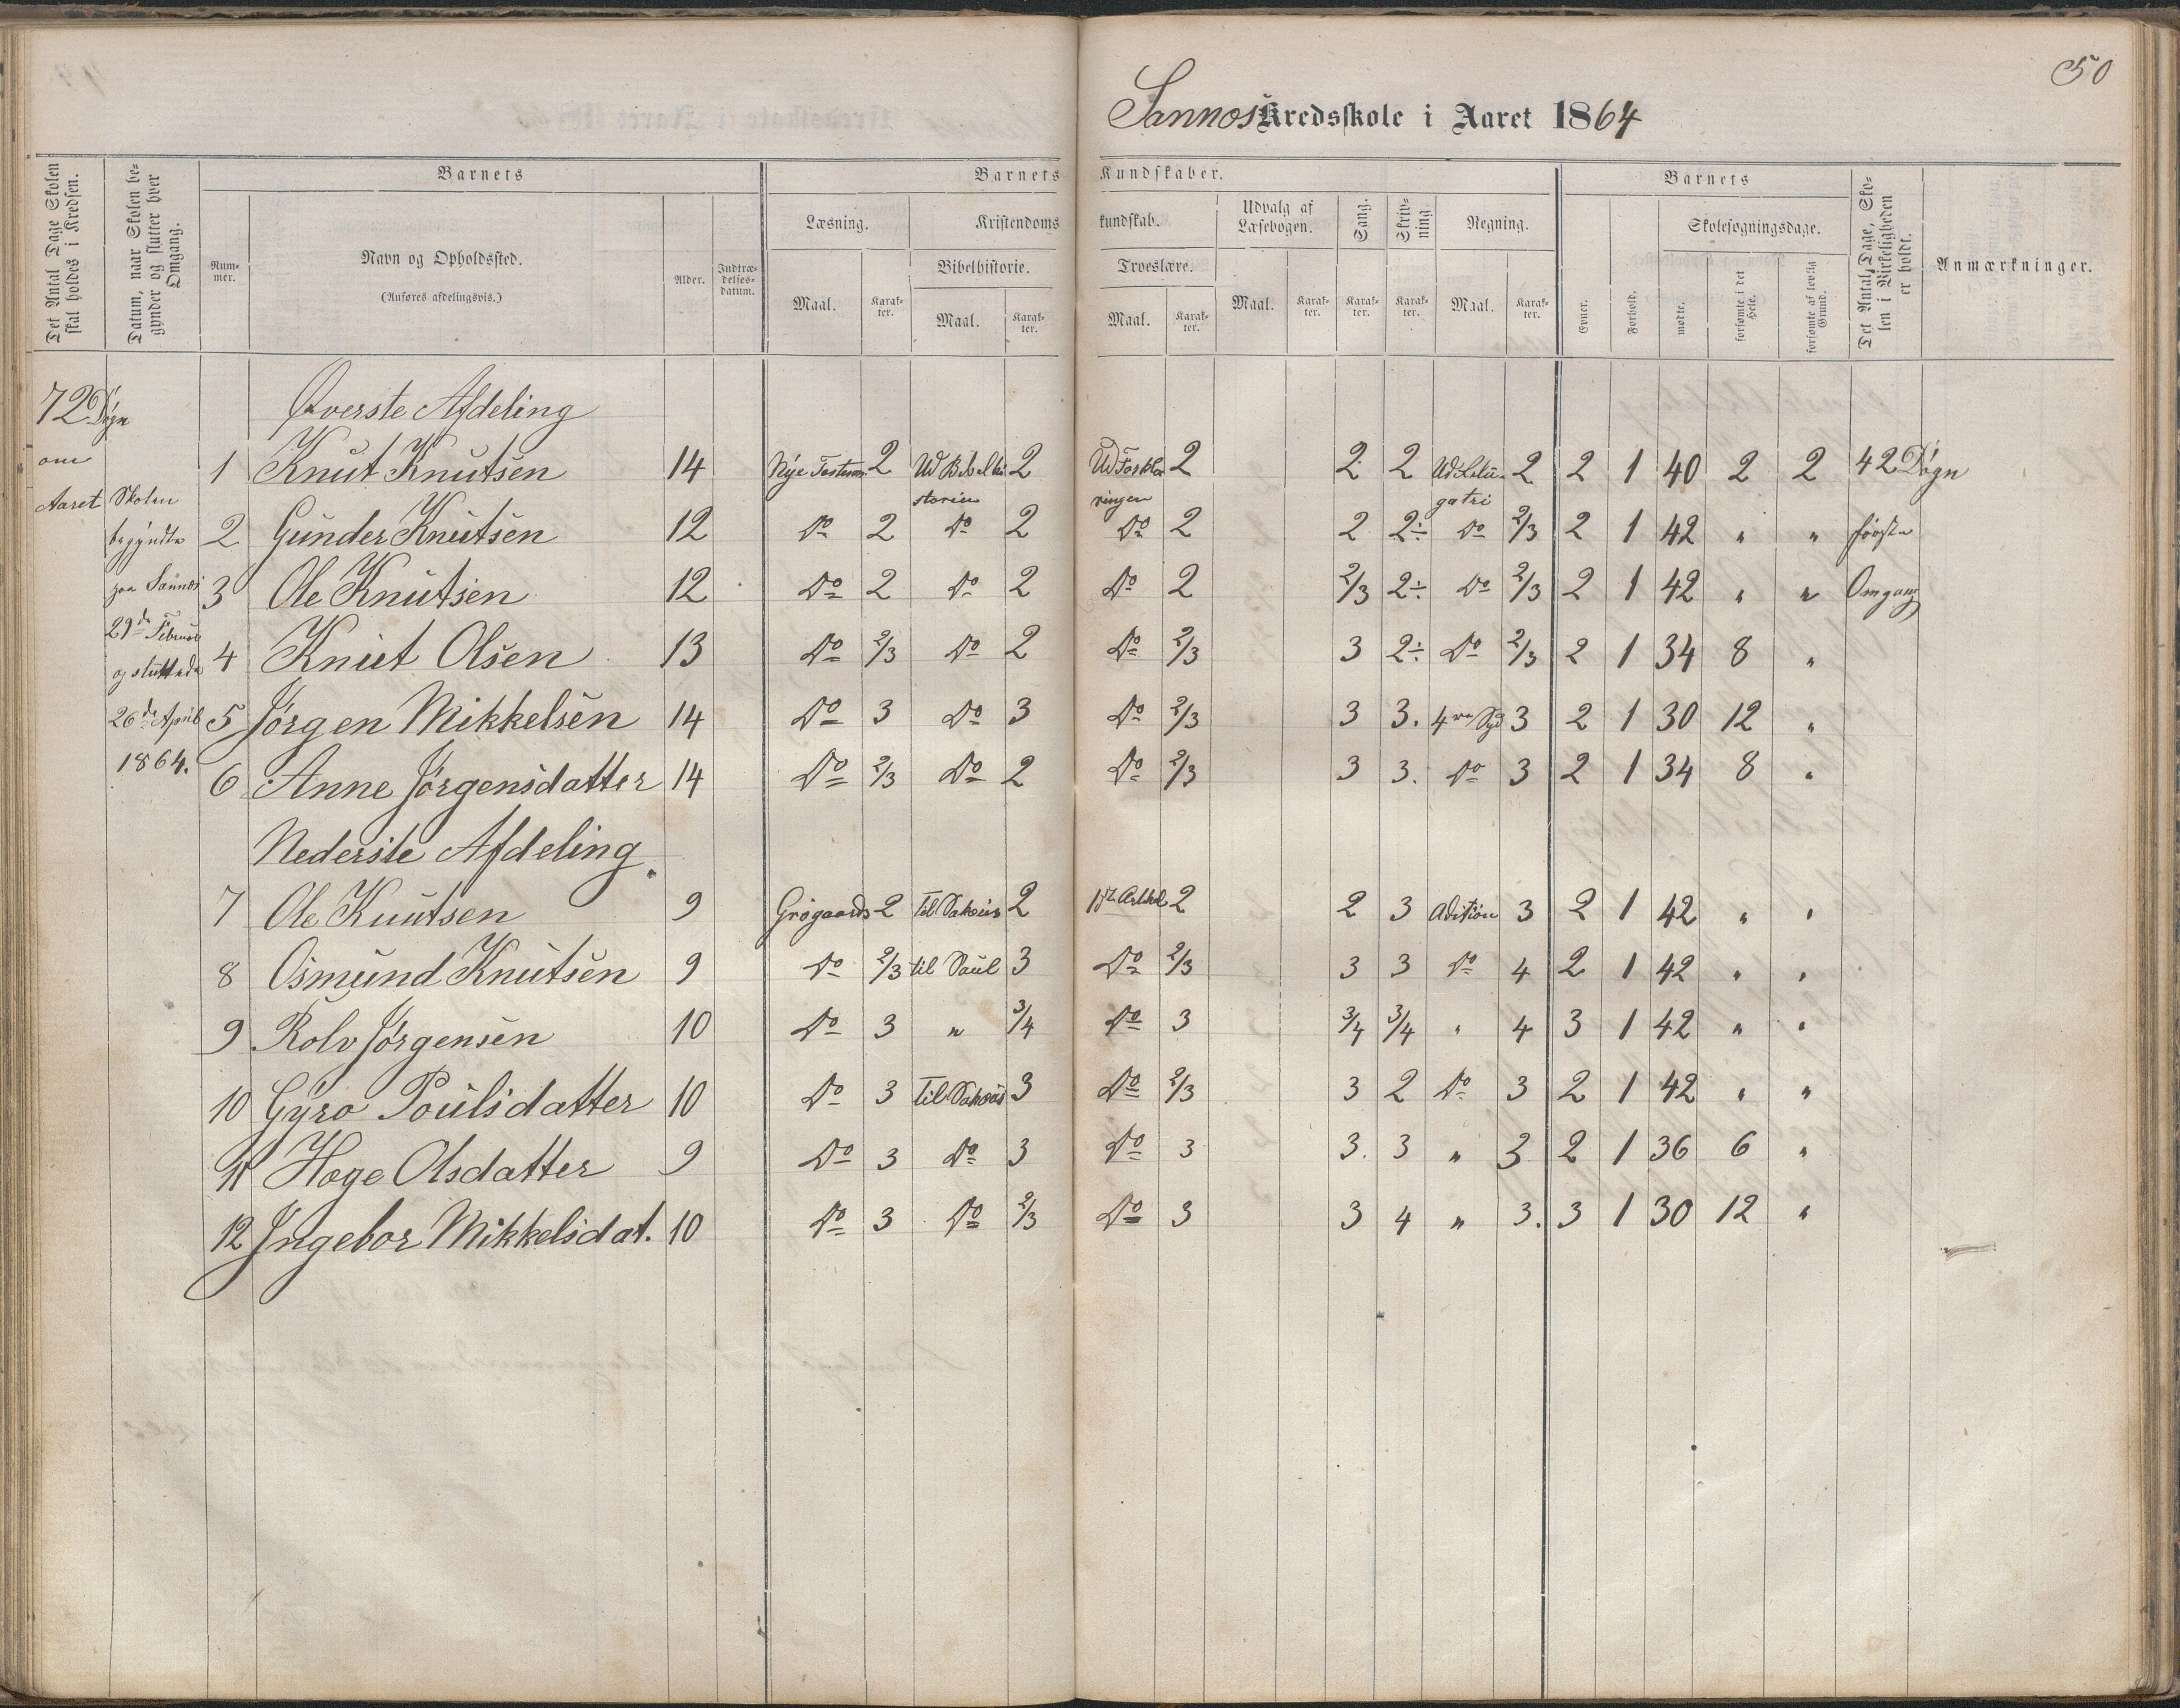 50
Sannes Kredsskole i Aaret 1864
Det Antal Dage Skolen skal holdes i Kredsen.
Datum, naar Skolen begynder og slutter hver Omgang.
Barnets
Nummer.
Navn og Opholdssted.
(Anføres afdelingsvis.)
Alder.
Indtrædelsesdatum.
Barnets Kundskaber.
Læsning.
Maal.
Karakter.
Kristendomskundskab.
Bibelhistorie.
Maal.
Karakter.
Troeslære.
Maal.
Karakter.
Udvalg af Læsebogen.
Maal.
Karakter.
Sang.
Karakter.
Skrivning.
Karakter.
Regning.
Maal.
Karakter.
Barnets
Evner.
Forhold.
Skolesøgningsdage.
mødte.
forsømte i det Hele.
forsømte af lovlig Grund.
Det Antal Dage, Skolen i Virkeligheden er holdt.
Anmærkninger.
72 Døgn
om
Aaret
Skolen
begyndte
paa Sannes
29de Februar
og sluttede
26de April
1864.
Øverste Afdeling
1 Knut Knutsen 14 Nye Testem 2 Ud Bibelhistorien 2 Ud Forklaringen 2 2 2 2 2 1 40 2 2 42 Døgn
2 Gunder Knutsen 12 Do 2 Do 2 Do 2 2 2÷ Do 2/3 2 1 42 " " første
3 Ole Knutsen 12 Do 2 Do 2 Do 2 2/3 2÷ Do 2/3 2 1 42 " " Omgang
4 Knut Olsen 13 Do 2/3 Do 2 Do 2/3 3 2÷ Do 2/3 2 1 34 8 "
5 Jørgen Mikkelsen 14 Do 3 Do 3 Do 2/3 3 3. 4re 3 2 1 30 12 "
6 Anne Jørgensdatter 14 Do 2/3 Do 2 Do 2/3 3 3. Do 3 2 1 34 8 "
Nederste Afdeling.
7 Ole Knutsen 9 Grøgaards 2 2 2 2 3 Adition 3 2 1 42 " "
8 Osmund Knutsen 9 Do 2/3 til Saul 3 Do 2/3 3 3 Do 4 2 1 42 " "
9 Rolv Jørgensen 10 Do 3 " 3/4 Do 3 3/4 3/4 " 4 3 1 42 " "
10 Gyro Poulsdatter 10 Do 3 3 Do 2/3 3 2 Do 3 2 1 42 " "
11 Hoge Olsdatter 9 Do 3 Do 3 Do 3 3. 3 " 3 2 1 36 6 "
12 Ingebor Mikkelsdat. 10 Do 3 Do 2/3 Do 3 3 4 " 3. 3 1 30 12 "